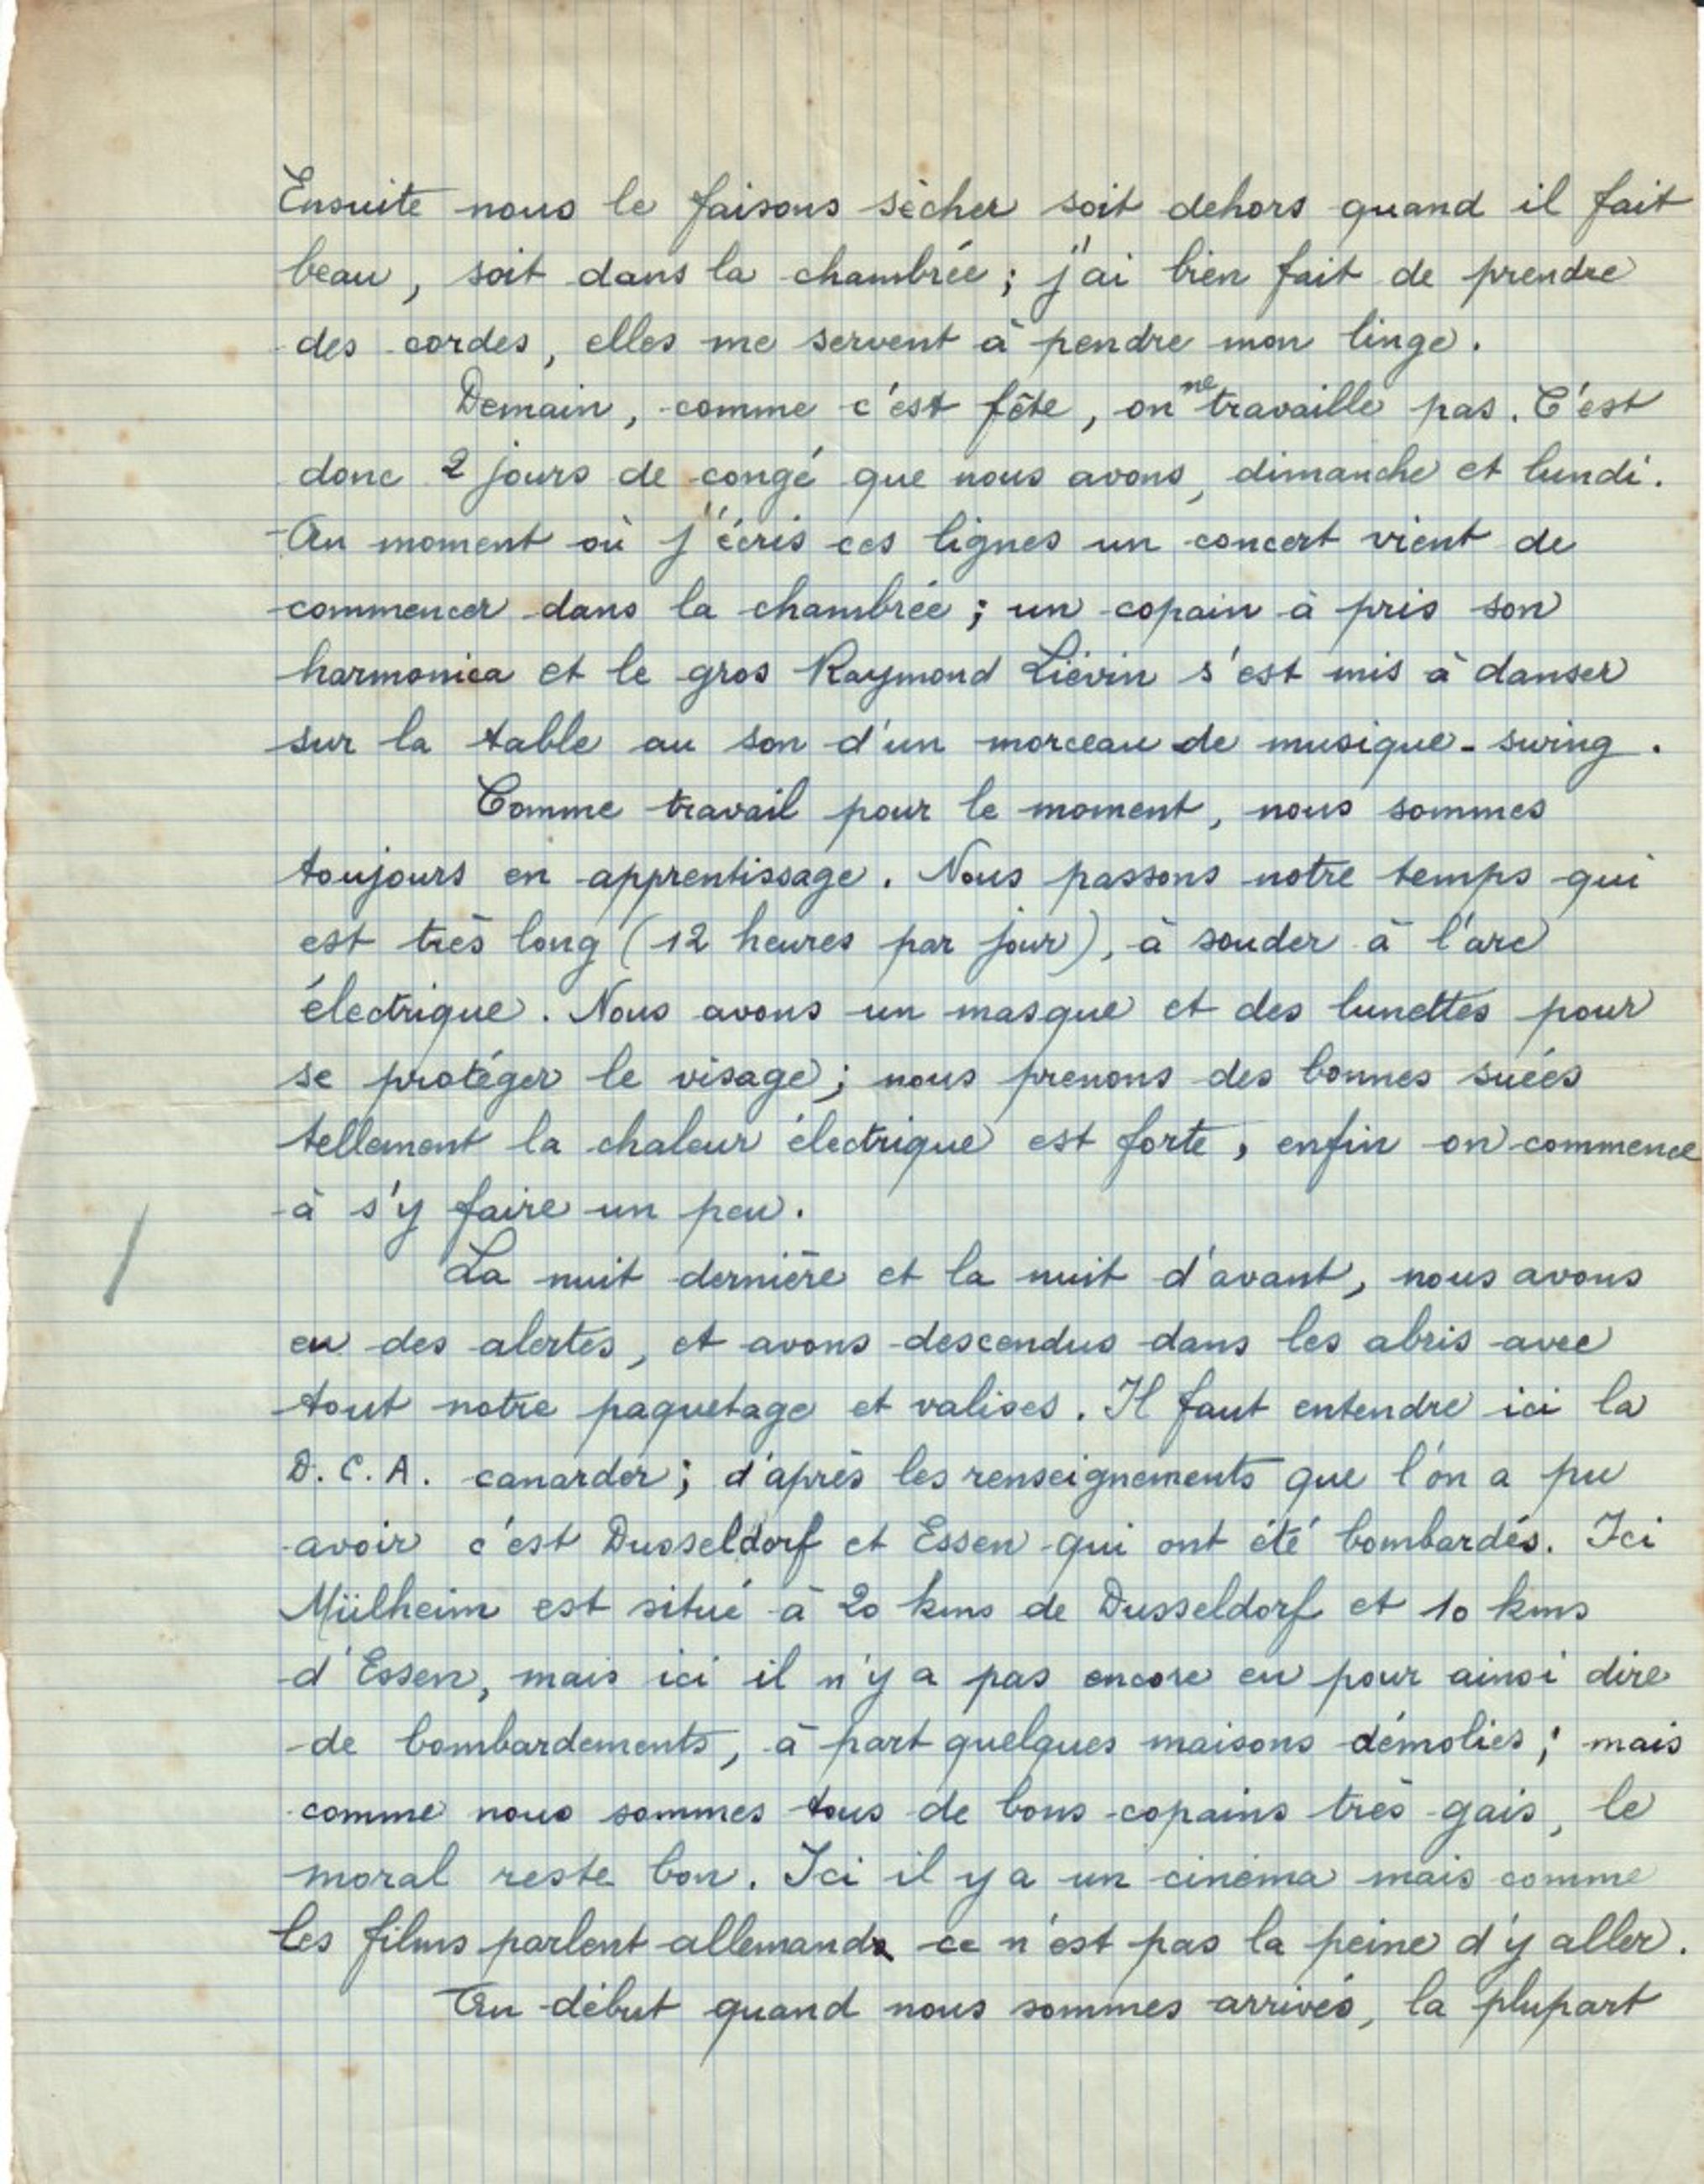 Ensuite nous le faisons sècher soit dehors quand il fait
beau, soit dans la chambrée ; j'ai bien fait de prendre
des cordes, elles me servent à pendre mon linge.
Demain, comme c'est fête, on ne travaille pas. C'est
donc 2 jours de congé que nous avons, dimanche et lundi.
Au moment où j'écris ces lignes un concert vient de
commencer dans la chambrée ; un copain à pris son
harmonica et le gros Raymond Liévin s'est mis à danser
sur la table au son d'un morceau de musique-swing.
Comme travail pour le moment, nous sommes
toujours en apprentissage. Nous passons notre temps qui
est très long (12 heures par jour), à souder à l'arc
électrique. Nous avons un masque et des lunettes pour
se protéger le visage ; nous prenons des bonnes suées
tellement la chaleur électrique est forte, enfin on commence
à s'y faire un peu.
La nuit dernière et la nuit d'avant, nous avons
eu des alertes, et avons descendus dans les abris avec
tout notre paquetage et valises. Il faut entendre ici la
D.C.A. canarder ; d'après les renseignements que l'on a pu
avoir c'est Dusseldorf et Essen qui ont été bombardés. Ici
Mülheim est situé à 20 kms de Dusseldorf et 10 kms
d'Essen, mais ici il n'y a pas encore eu pour ainsi dire
de bombardements, à part quelques maisons démolies ; mais
comme nous sommes tous de bons copains très gais, le
moral reste bon. Ici il y a un cinéma mais comme
les films parlent allemand ce n'est pas la peine d'y aller.
Au début quand nous sommes arrivés, la plupart